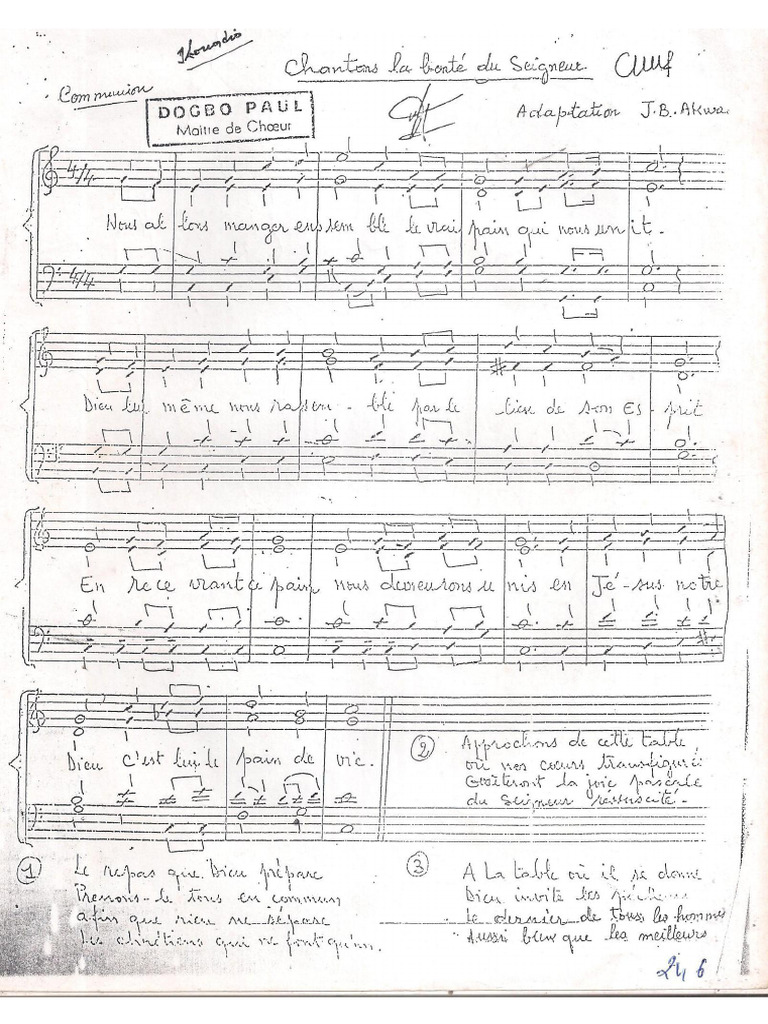 Chantons la bonté du Seigneur
Communion
DOGBO PAUL
Maître de Chœur
Adaptation J.B. Akwa
4/4
Nous al lons manger ensem ble le vrai pain qui nous unit.
4/4
Dieu lui même nous rassem - ble par le lien de son Es - prit
En rece vrant ce pain nous demeurons u nis en Jé - sus notre
Dieu c'est lui le pain de vie.
② Approchons de cette table
où nos cœurs transfiguré
Goûteront la joie pascale
du Seigneur ressuscité.
① Le repas que Dieu prépare
Prenons-le tous en commun
afin que rien ne sépare
Les chrétiens qui ne font qu'un.
③ A La table où il se donne
Dieu invite les pécheurs
Le dernier de tous les hommes
Aussi bien que les meilleurs
246